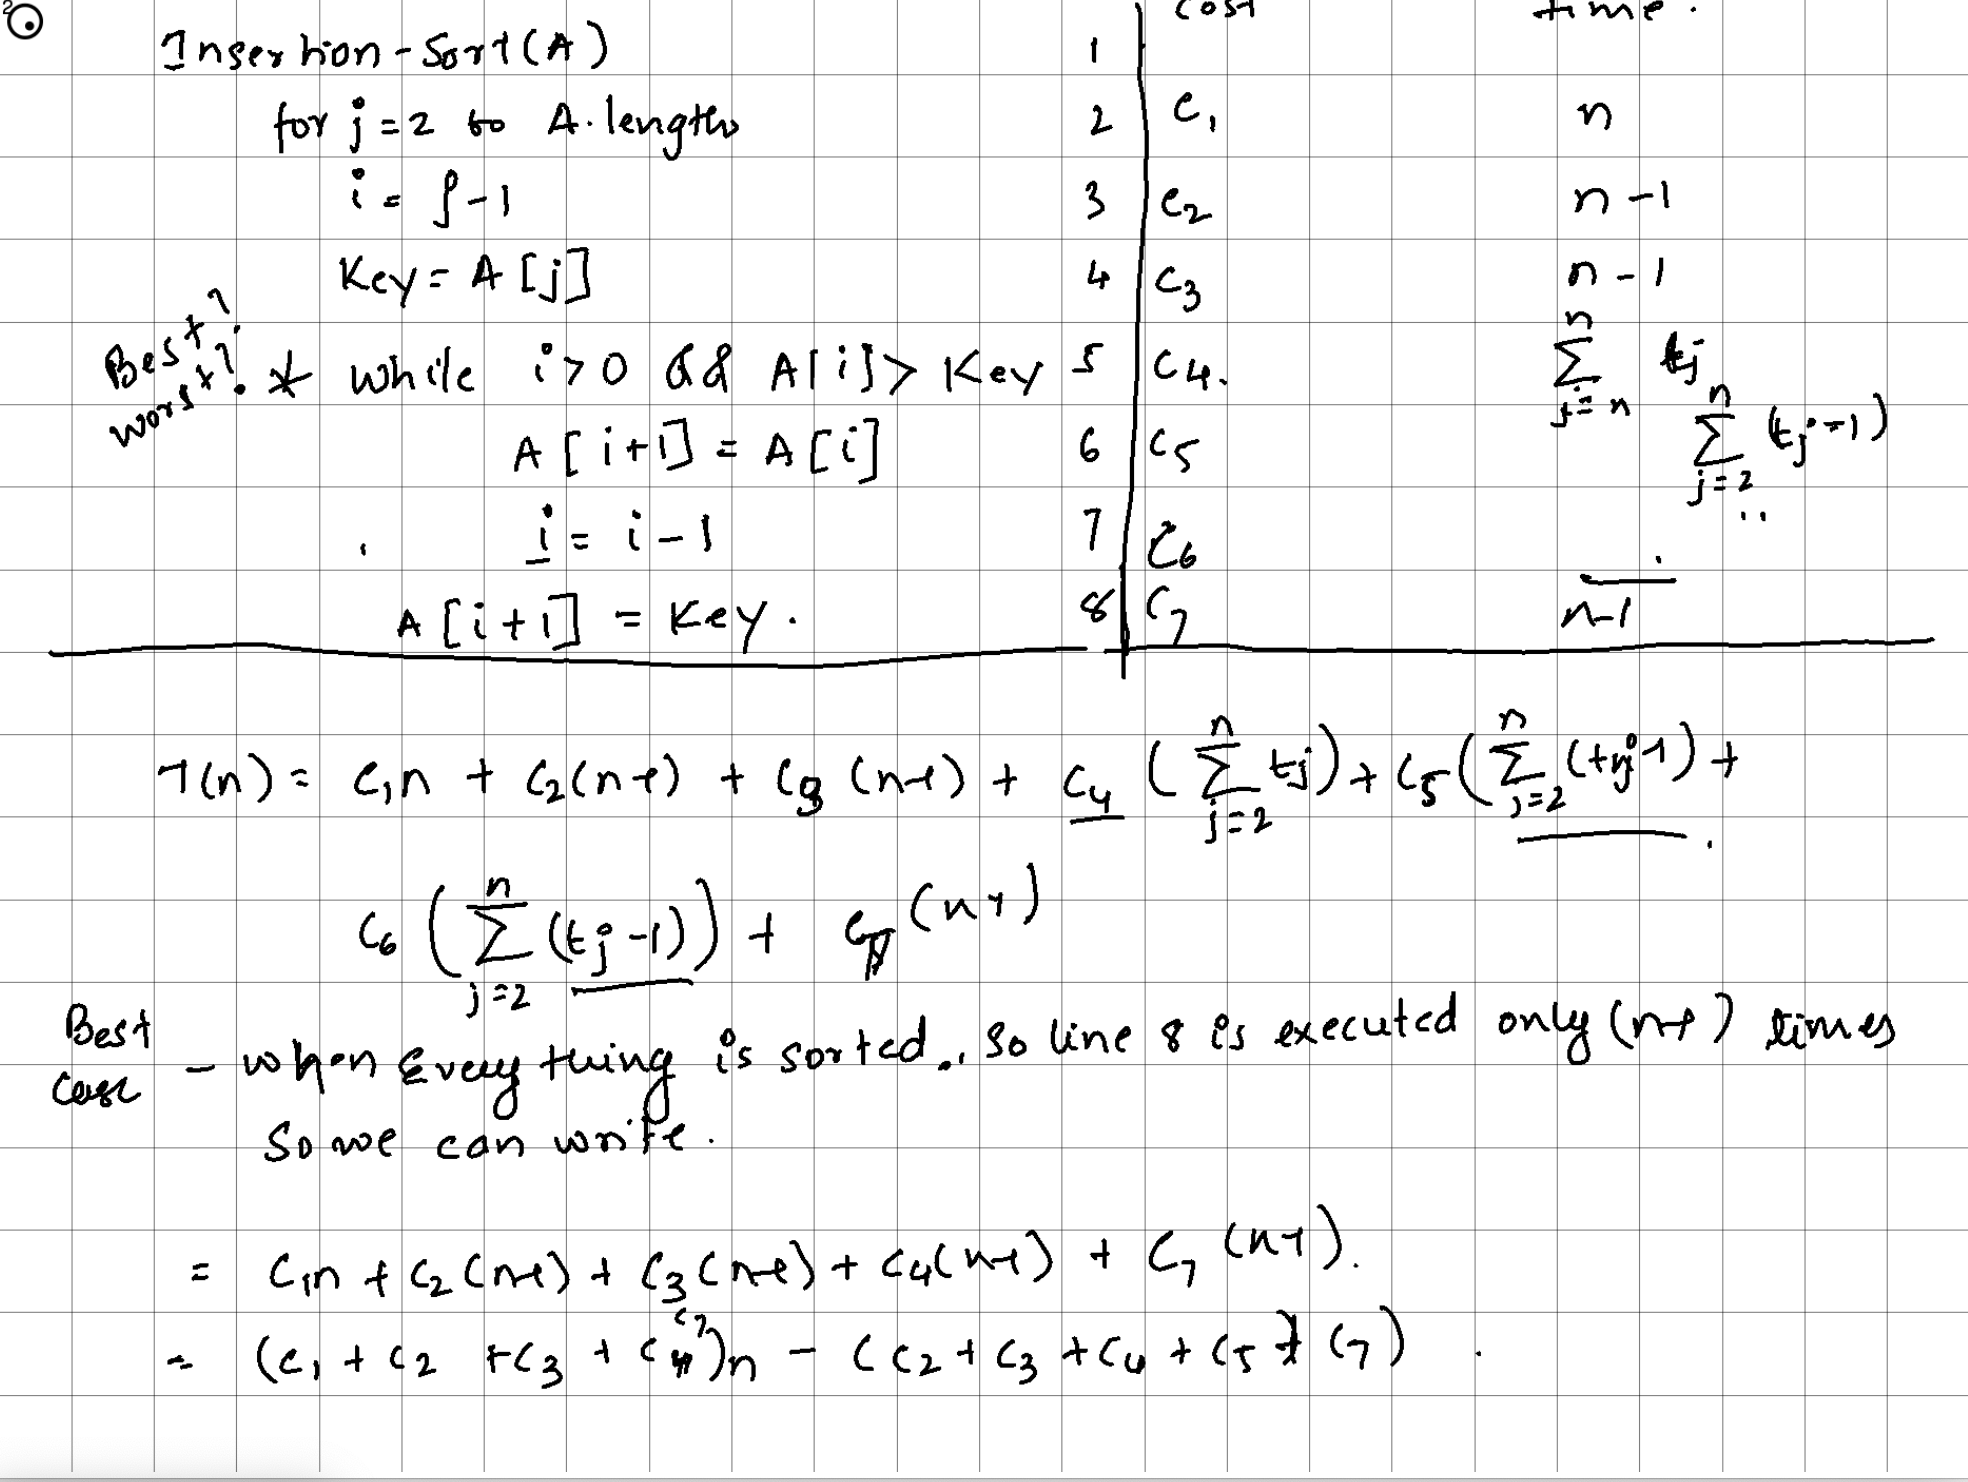 cost time.
Insertion-Sort(A) 1
for j=2 to A.length 2 c₁ n
i = j-1 3 c₂ n-1
Key = A[j] 4 c₃ n-1
Best?
worst?
* while i>0 && A[i]> Key 5 c₄. ∑_{j=n}^{n} tj
A[i+1] = A[i] 6 c₅ ∑_{j=2}^{n} (tj-1)
i = i-1 7 c₆ ..
A[i+1] = Key. 8 c₇ n-1
T(n) = c₁n + c₂(n-1) + c₃(n-1) + c₄ (∑_{j=2}^{n} tj) + c₅(∑_{j=2}^{n} (tj-1) +
c₆ (∑_{j=2}^{n} (tj-1)) + c₇ (n-1)
Best
case
- when Every thing is sorted., so line 8 is executed only (n-1) times
So we can write.
= c₁n + c₂(n-1) + c₃(n-1) + c₄(n-1) + c₇(n-1).
= (c₁ + c₂ + c₃ + c₄ c₇)n - (c₂ + c₃ + c₄ + c₅ + c₇)